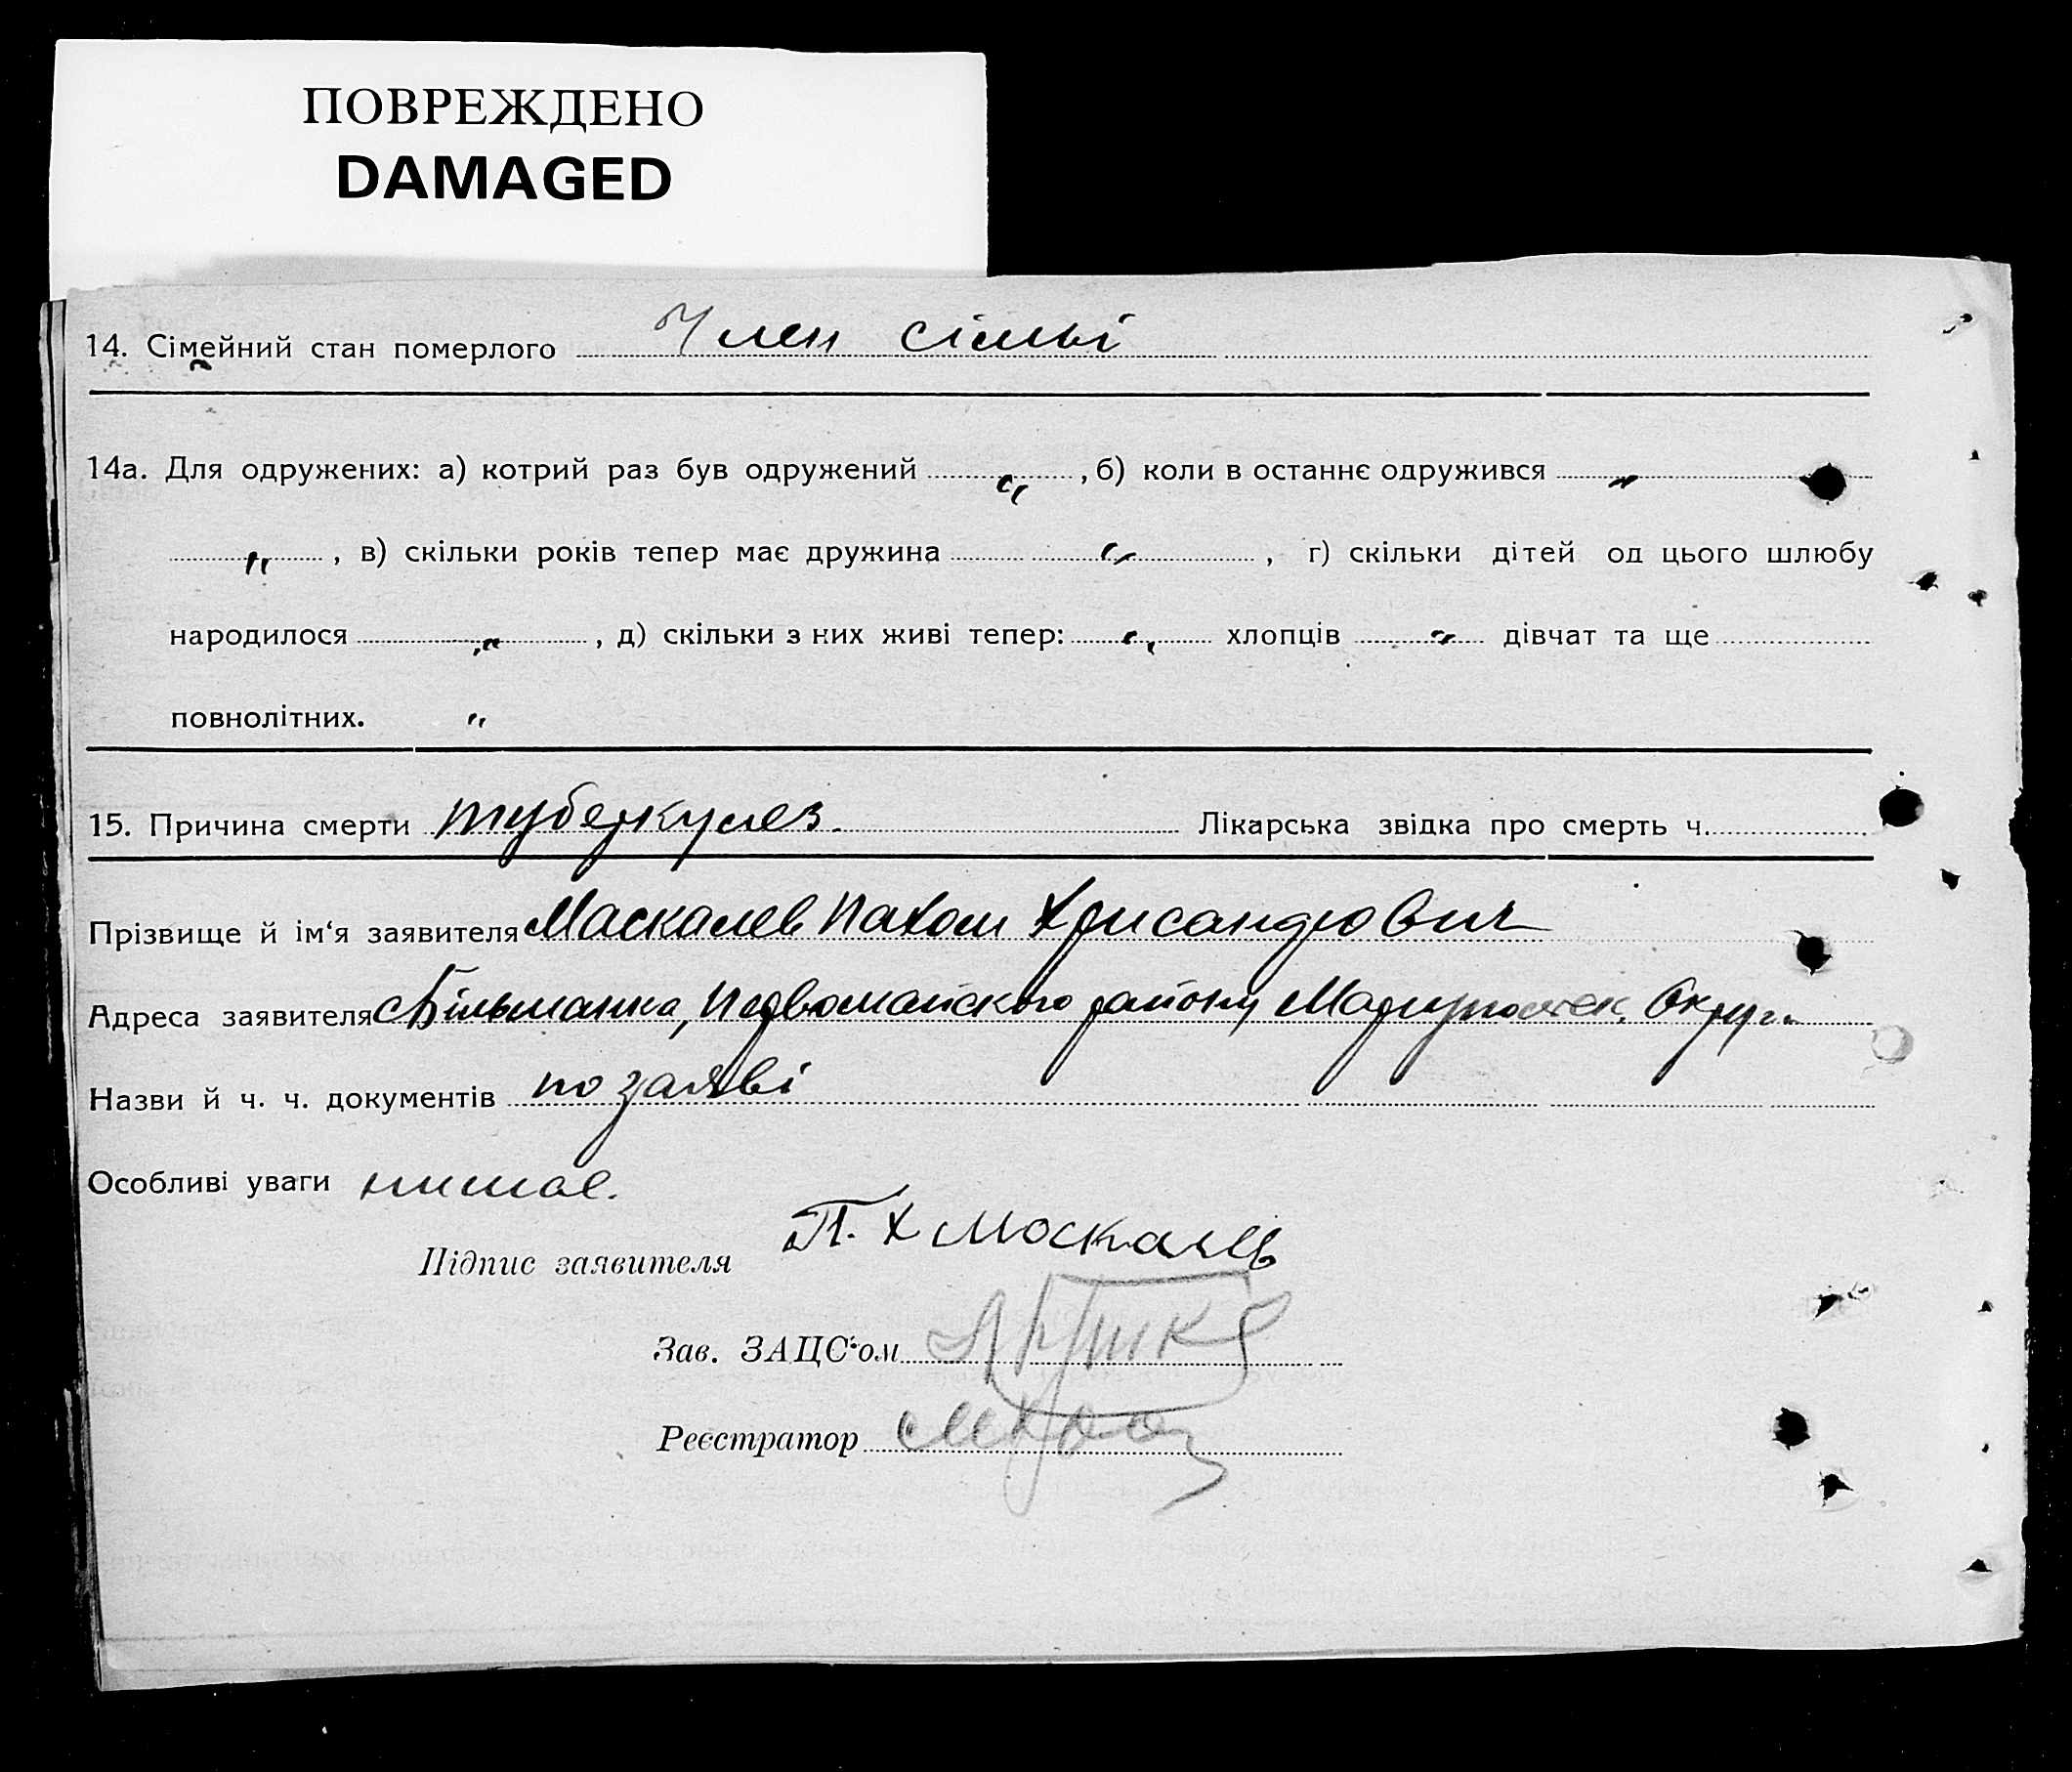 ПОВРЕЖДЕНО
DAMAGED
14. Сімейний стан померлого Член сімьі
14а. Для одружених: а) котрий раз був одружений „ , б) коли в останнє одружився „
„ , в) скільки років тепер має дружина „ , г) скільки дітей од цього шлюбу
народилося „ , д) скільки з них живі тепер: „ хлопців „ дівчат та ще
повнолітних. „
15. Причина смерти туберкулез. Лікарська звідка про смерть ч.
Прізвище й ім'я заявителя Маскалев Пахом Хрисандрович
Адреса заявителя с Більманка, Первомайского району Мариупольск. Округи
Назви й ч. ч. документів по заяві
Особливі уваги
Підпис заявителя П. Х Москалев
Зав. ЗАЦС'ом
Реєстратор